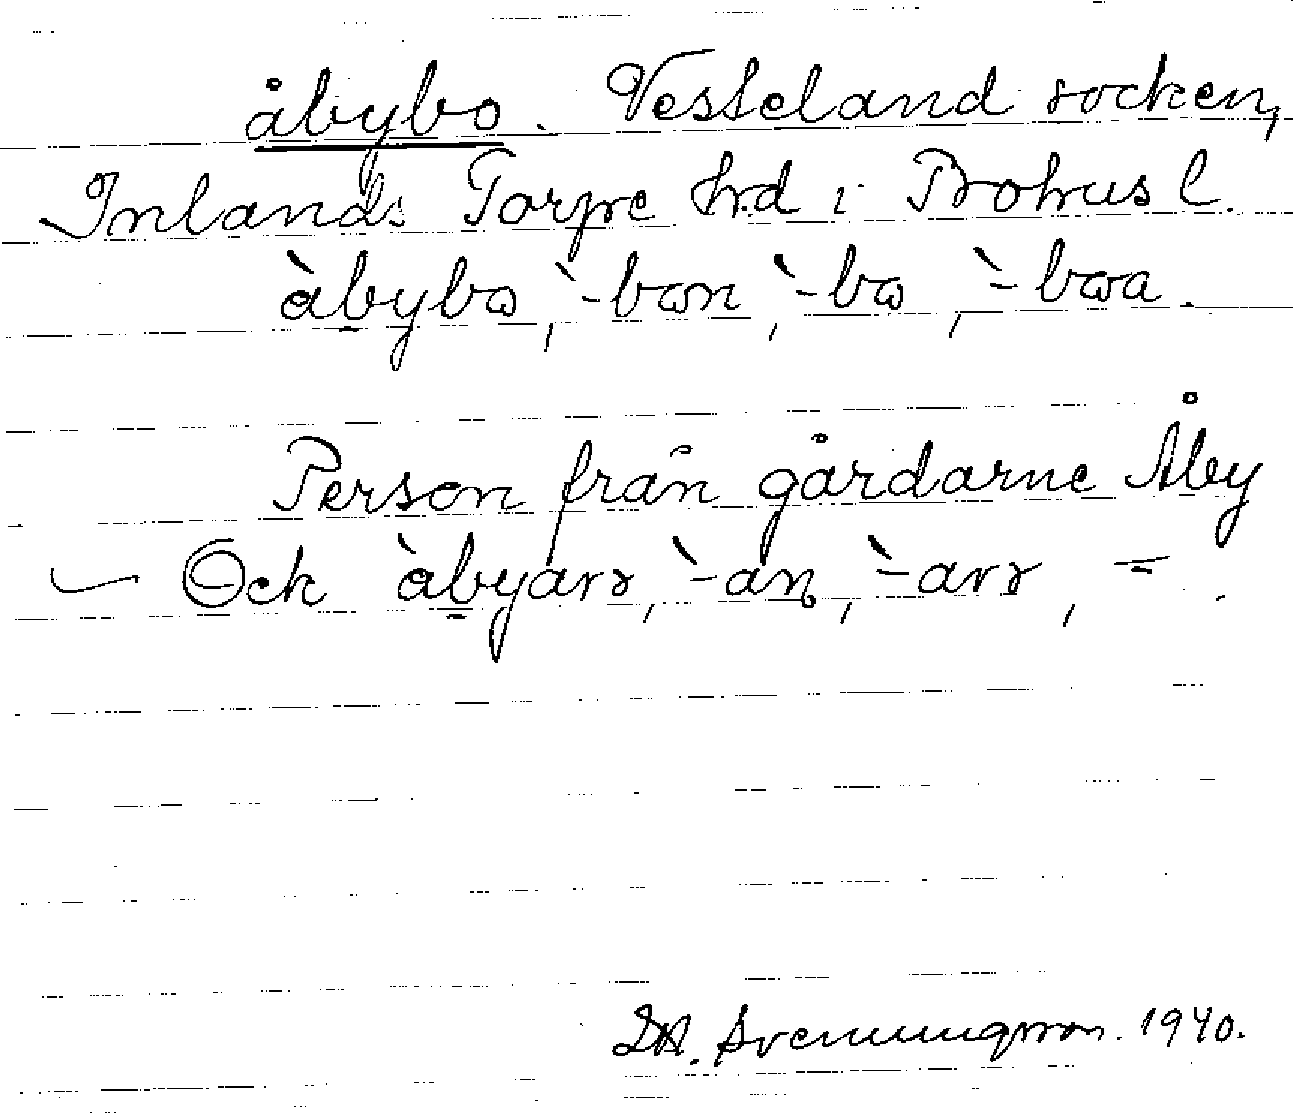 åbybo. Vesteland socken,
Inlands Torpe hrd i Bohusl.
àbybɷ, `-bɷn, `-bɷ, `-bɷa.
Person från gårdarne Åby
— Ock àbyarɤ, `-an, `-arɤ, = .
Svenningsson. 1940.